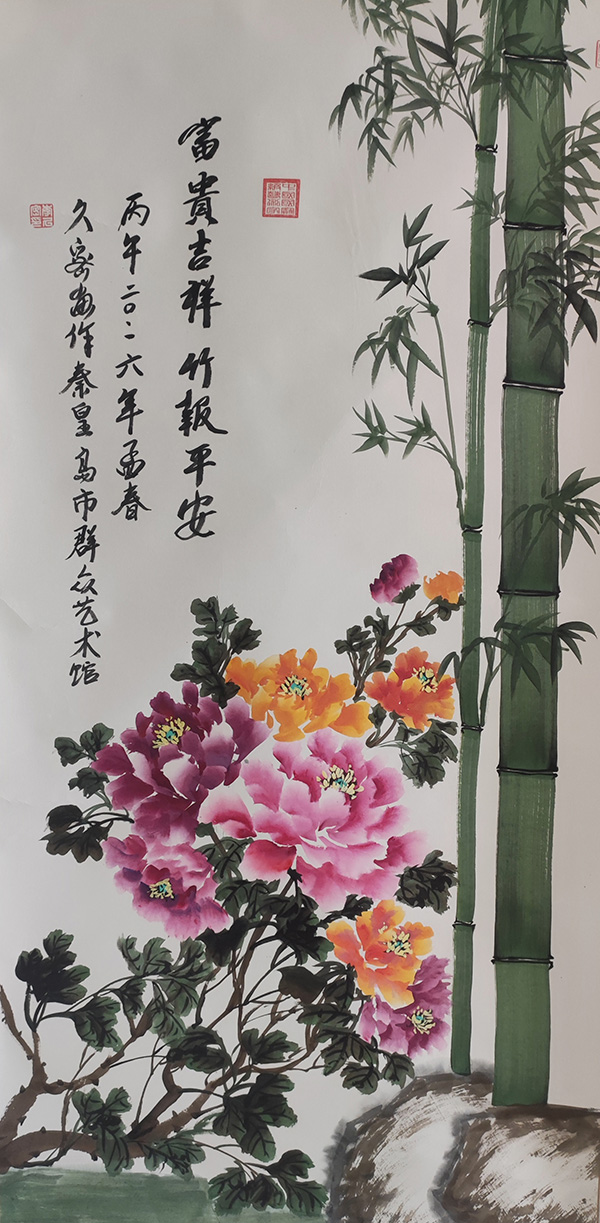 富貴吉祥 竹報平安
丙午二〇二六年孟春
久客画作秦皇島市群众艺术馆